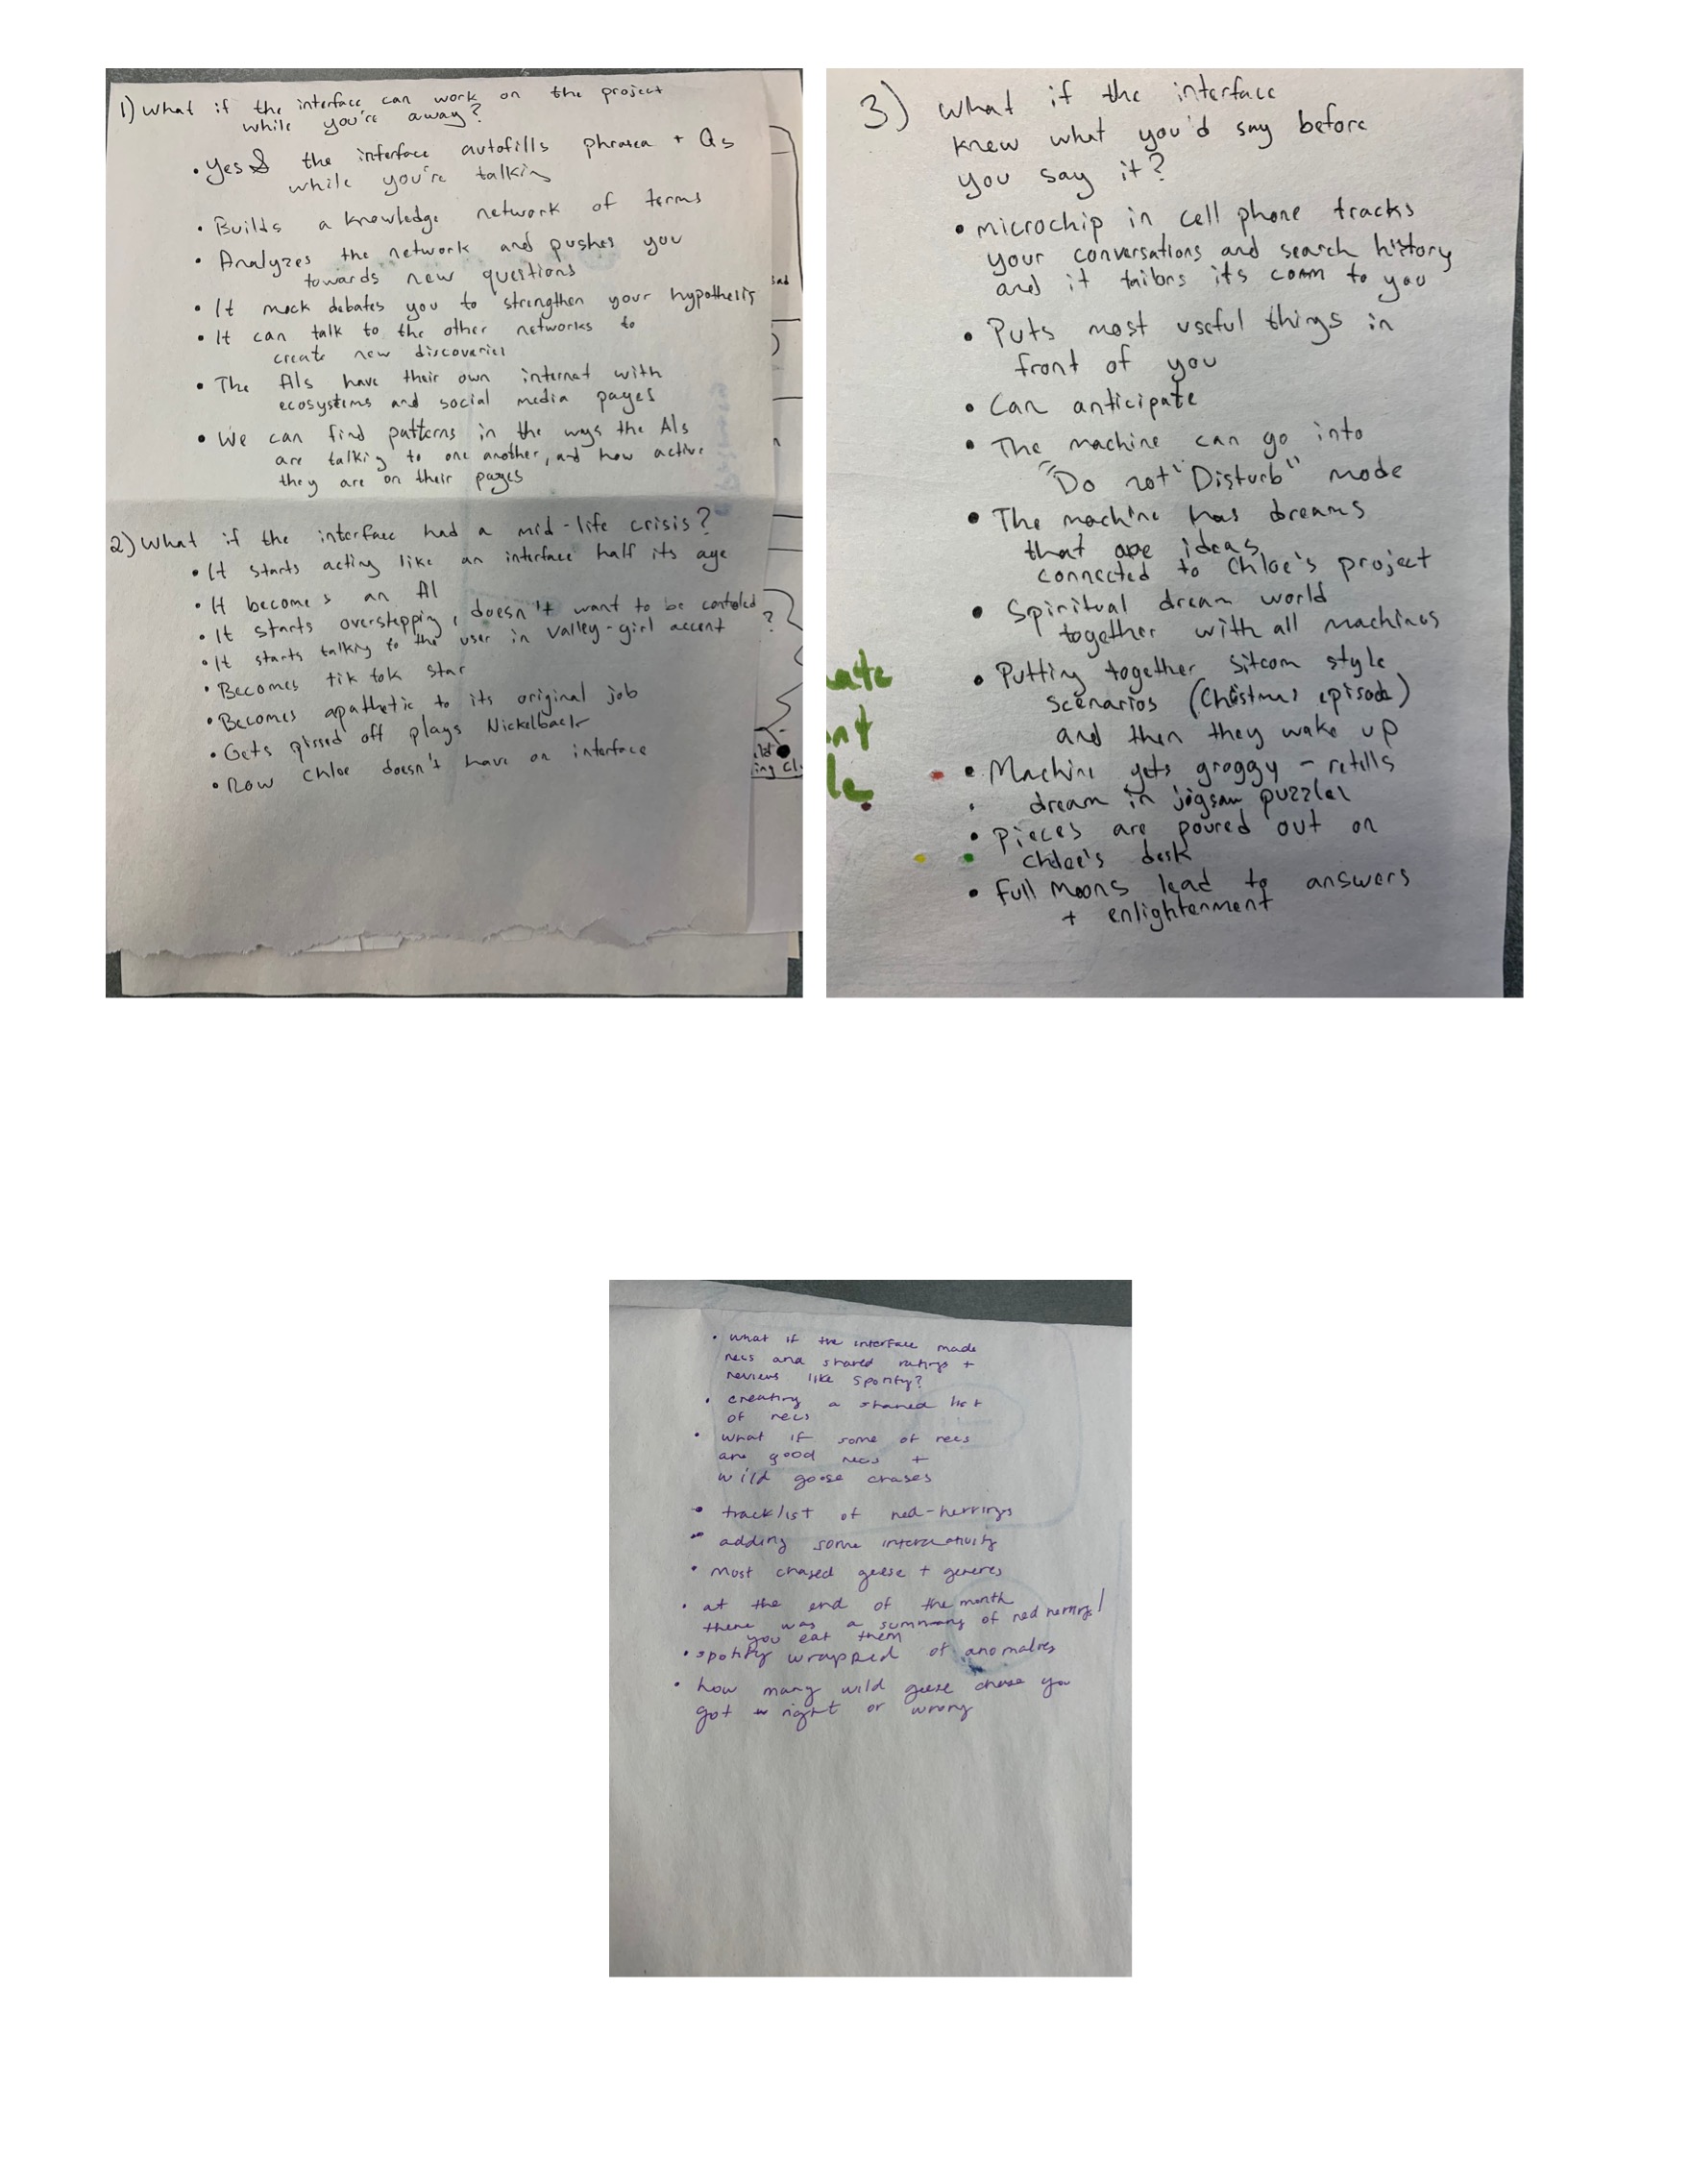 1) What if the interface can work on the project
while you're away?
• Yes & the interface autofills phrases + Qs
while you're talkin
• Builds a knowledge network of terms
• Analyzes the network and pushes you
towards new questions
• It mock debates you to strengthen your hypothesis
• It can talk to the other networks to
create new discoveries
• The AIs have their own internet with
ecosystems and social media pages
• We can find patterns in the ways the AIs
are talking to one another, and how active
they are on their pages
2) What if the interface had a mid-life crisis?
• It starts acting like an interface half its age
• It becomes an AI
• It starts overstepping, doesn't want to be controled
• It starts talking to the user in Valley-girl accent ?
• Becomes tik tok star
• Becomes apathetic to its original job
• Gets pissed off plays Nickelback
• Now Chloe doesn't have an interface
3) What if the interface
knew what you'd say before
you say it?
• microchip in cell phone tracks
your conversations and search history
and it tailors its comm to you
• Puts most useful things in
front of you
• Can anticipate
• The machine can go into
"Do not "Disturb" mode
• The machine has dreams
that are ideas
connected to Chloe's project
• Spiritual dream world
together with all machines
• Putting together sitcom style
scenarios (Christmas episode)
and then they wake up
• Machine gets groggy - retells
dream in jigsaw puzzles
• Pieces are poured out on
Chloe's desk
• Full Moons lead to answers
+ enlightenment
• what if the interface made
recs and shared ratings +
reviews like Spotify?
• creating a shared list
of recs
• what if some of recs
are good recs +
wild goose chases
• tracklist of red-herrings
• adding some interactivity
• most chased geese + generes
• at the end of the month
there was a summary of red herrings!
you eat them
• spotify wrapped of anomalies
• how many wild geese chase you
got right or wrong